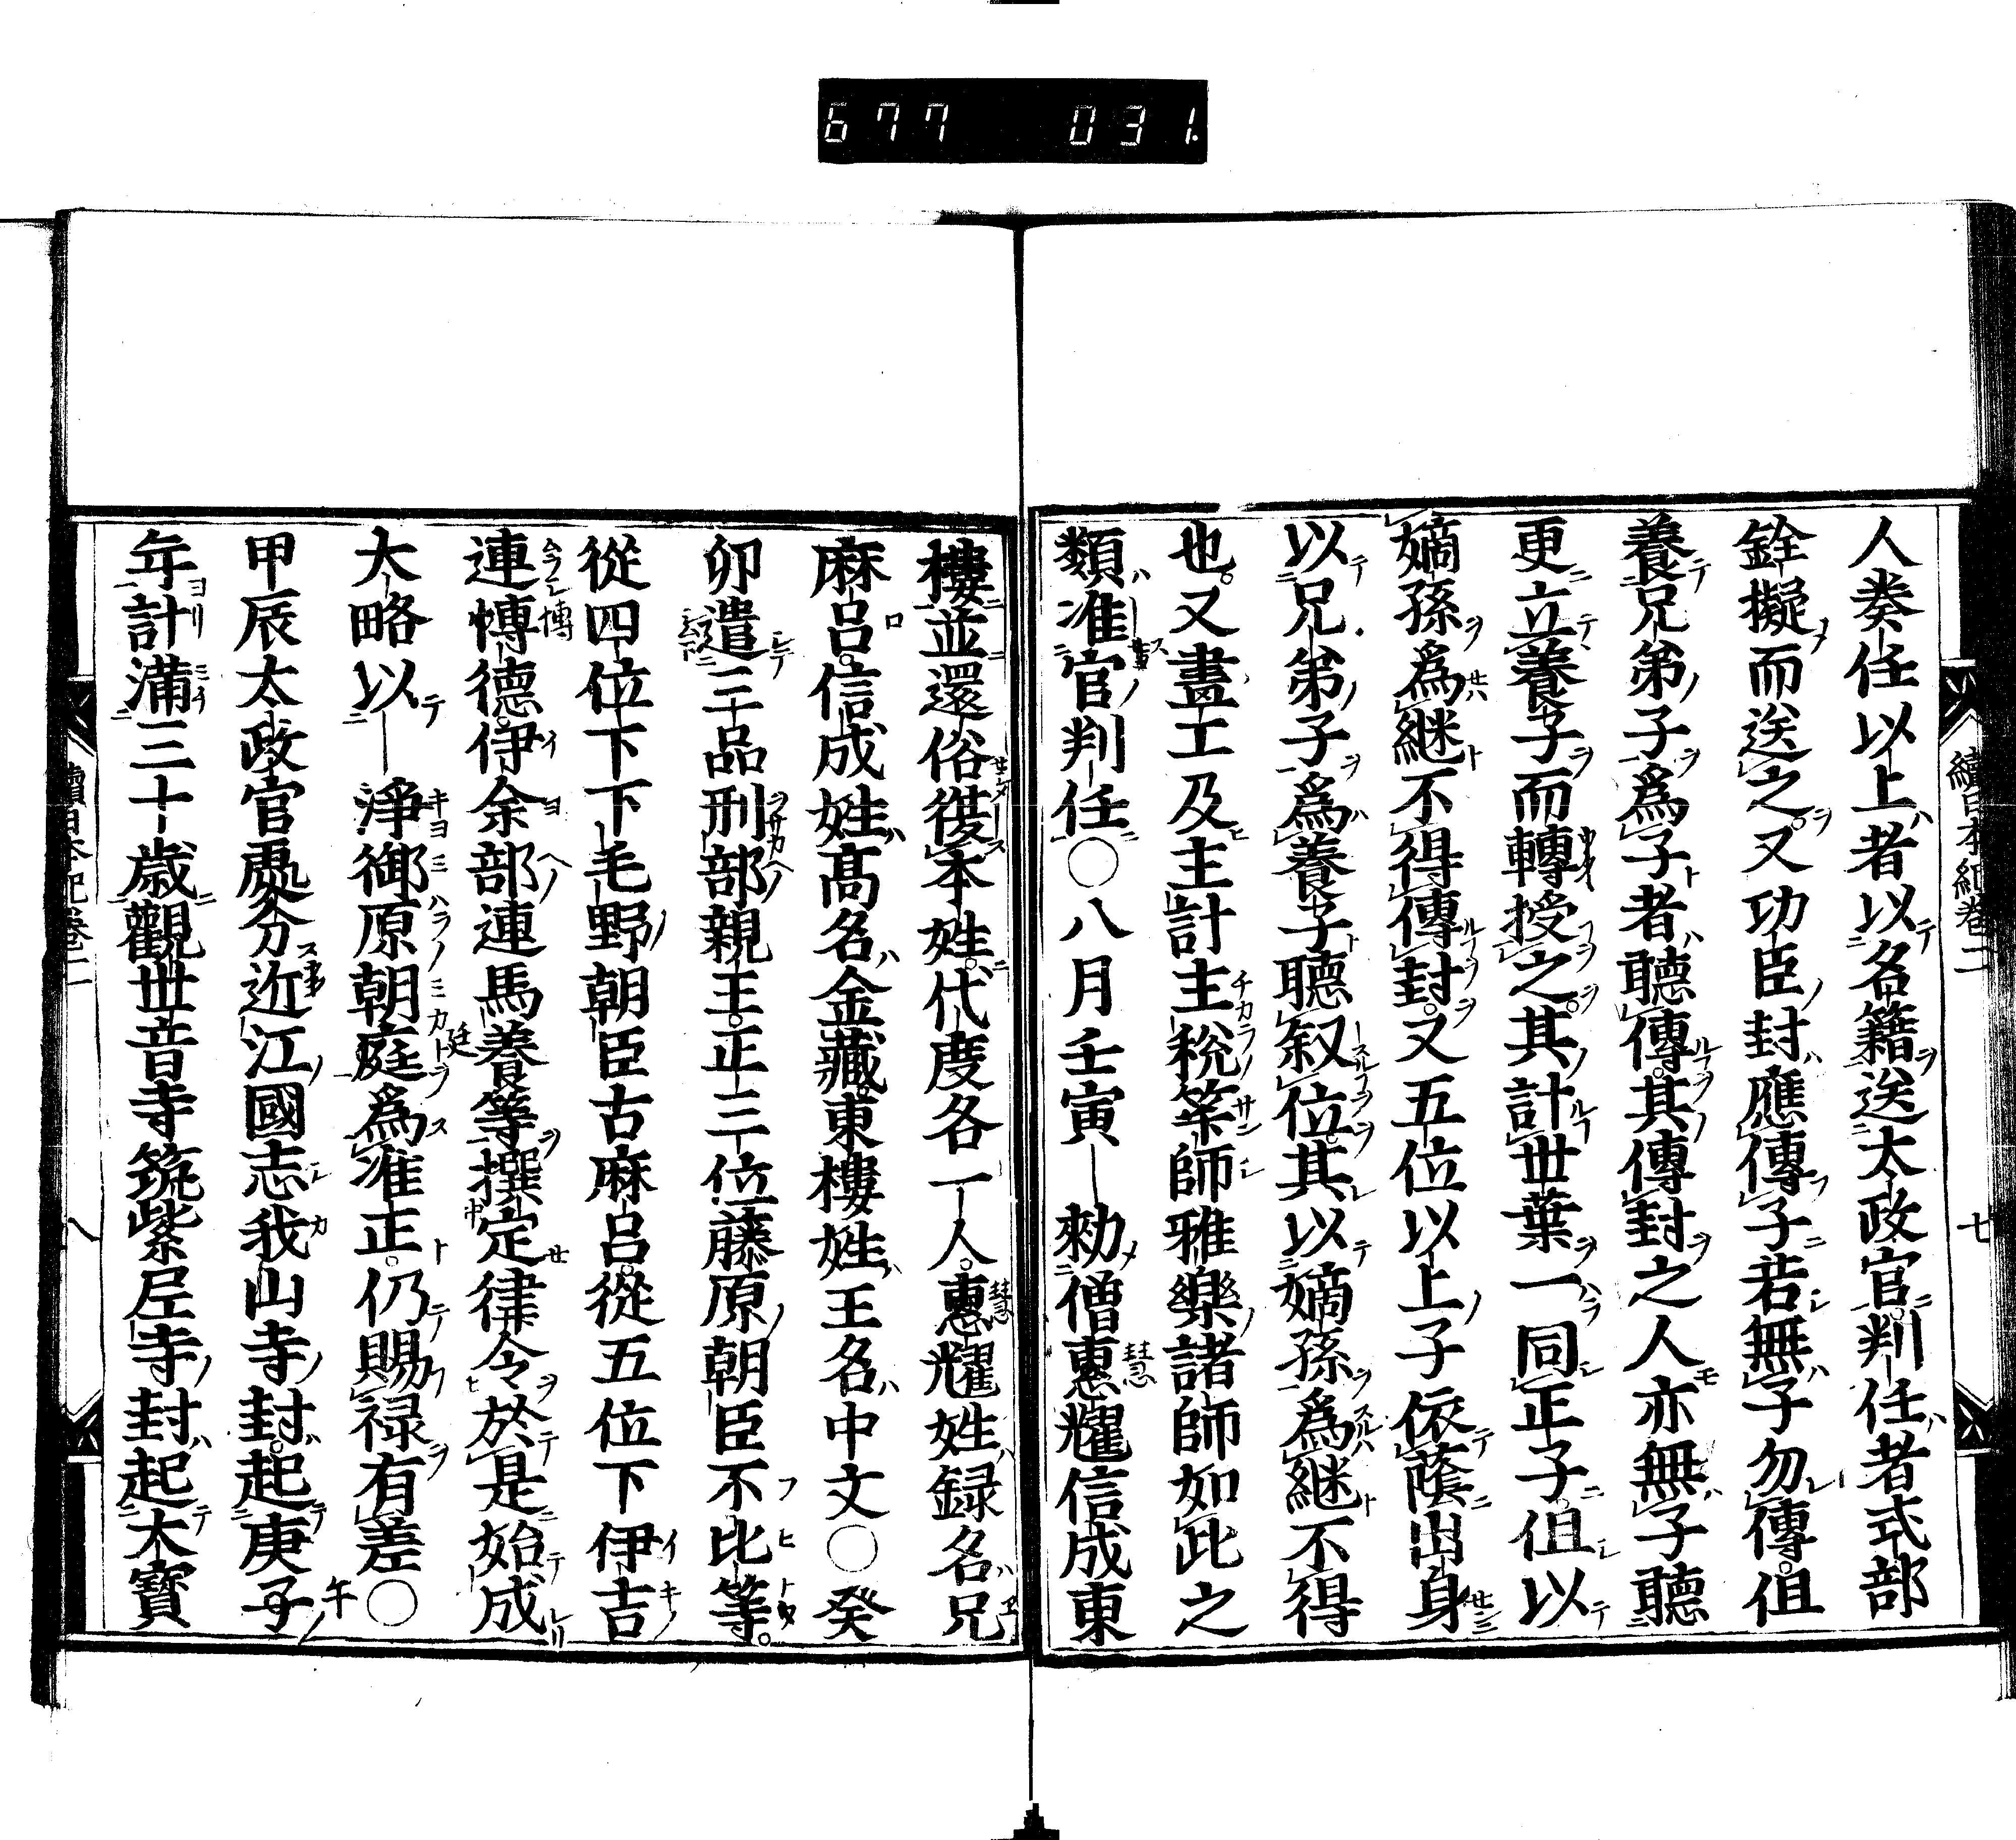 677 031
續日本紀卷二
七
人奏任以上者以名籍送太政官判任者式部
銓擬而送之又功臣封應傳子若無子勿傳但
養兄弟子爲子者聽傳其傳封之人亦無子聽
更立養子而轉授之其計世葉一同正子但以
嫡孫爲継不得傳封又五位以上子依蔭出身
以兄弟子爲養子聽叙位其以嫡孫爲継不得
也又畫工及主計主税筭師雅樂諸師如此之
類准官判任○八月壬寅勑僧惠耀信成東
樓並還俗復本姓代度各一人惠耀姓録名兄
麻呂信成姓髙名金藏東樓姓王名中文○癸
卯遣三品刑部親王正三位藤原朝臣不比等
從四位下下毛野朝臣古麻呂從五位下伊吉
連愽德伊余部連馬養等撰定律令於是始成
大略以淨御原朝庭爲准正仍賜禄有差○
甲辰太政官處分近江國志我山寺封起庚子
年計滿三十歳觀世音寺筑紫尼寺封起大寶
續日本紀卷二
八